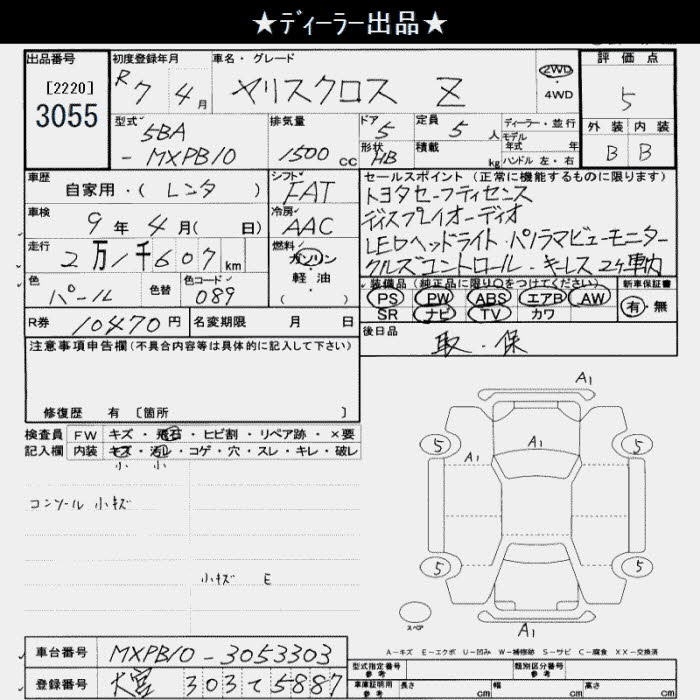 ★ディーラー出品★
出品番号
[2220]
3055
初度登録年月
R7 4月
車名・グレード
ヤリスクロス Z
2WD
・
4WD
評価点
5
外装 内装
B B
型式
5BA
-MXPB10
排気量
1500 cc
ドア
5
形状
HB
定員
5 人
積載
kg
ディーラー・並行
モデル
年式 年
ハンドル 左・右
車歴
自家用・( レンタ )
シフト
FAT
車検
9年 4月( 日)
冷房
AAC
走行
2万1千607km
燃料
ガソリン
軽・油
( )
色
パール
色替
色コード
089
R券
10470円
名変期限 月 日
セールスポイント (正常に機能するものに限ります)
トヨタセーフティセンス
ディスプレイオーディオ
LEDヘッドライト・パノラマビューモニター
クルズコントロール・キーレス2ヶ車内
装備品(純正品に限り○をつけてください)
PS PW ABS エアB AW
SR ナビ TV カワ
新車保証書
有・無
後日品
取・保
注意事項申告欄(不具合内容等は具体的に記入して下さい)
修復歴 有 [箇所 ]
検査員
記入欄
FW キズ・飛石・ヒビ割・リペア跡・×要
内装 キズ・汚レ・コゲ・穴・スレ・キレ・破レ
小 小
コンソール 小キズ
小キズ E
A1
A1
A1
5
5
5
5
A1
スペア
A-キズ E-エクボ U-凹み W-補修跡 S-サビ C-腐食 XX-交換済
車台番号
MXPB10-3053303
登録番号
大宮 303て5887
型式指定番号
参考
類別区分番号
参考
車庫証明用
参考
長さ cm
幅 cm
高さ cm